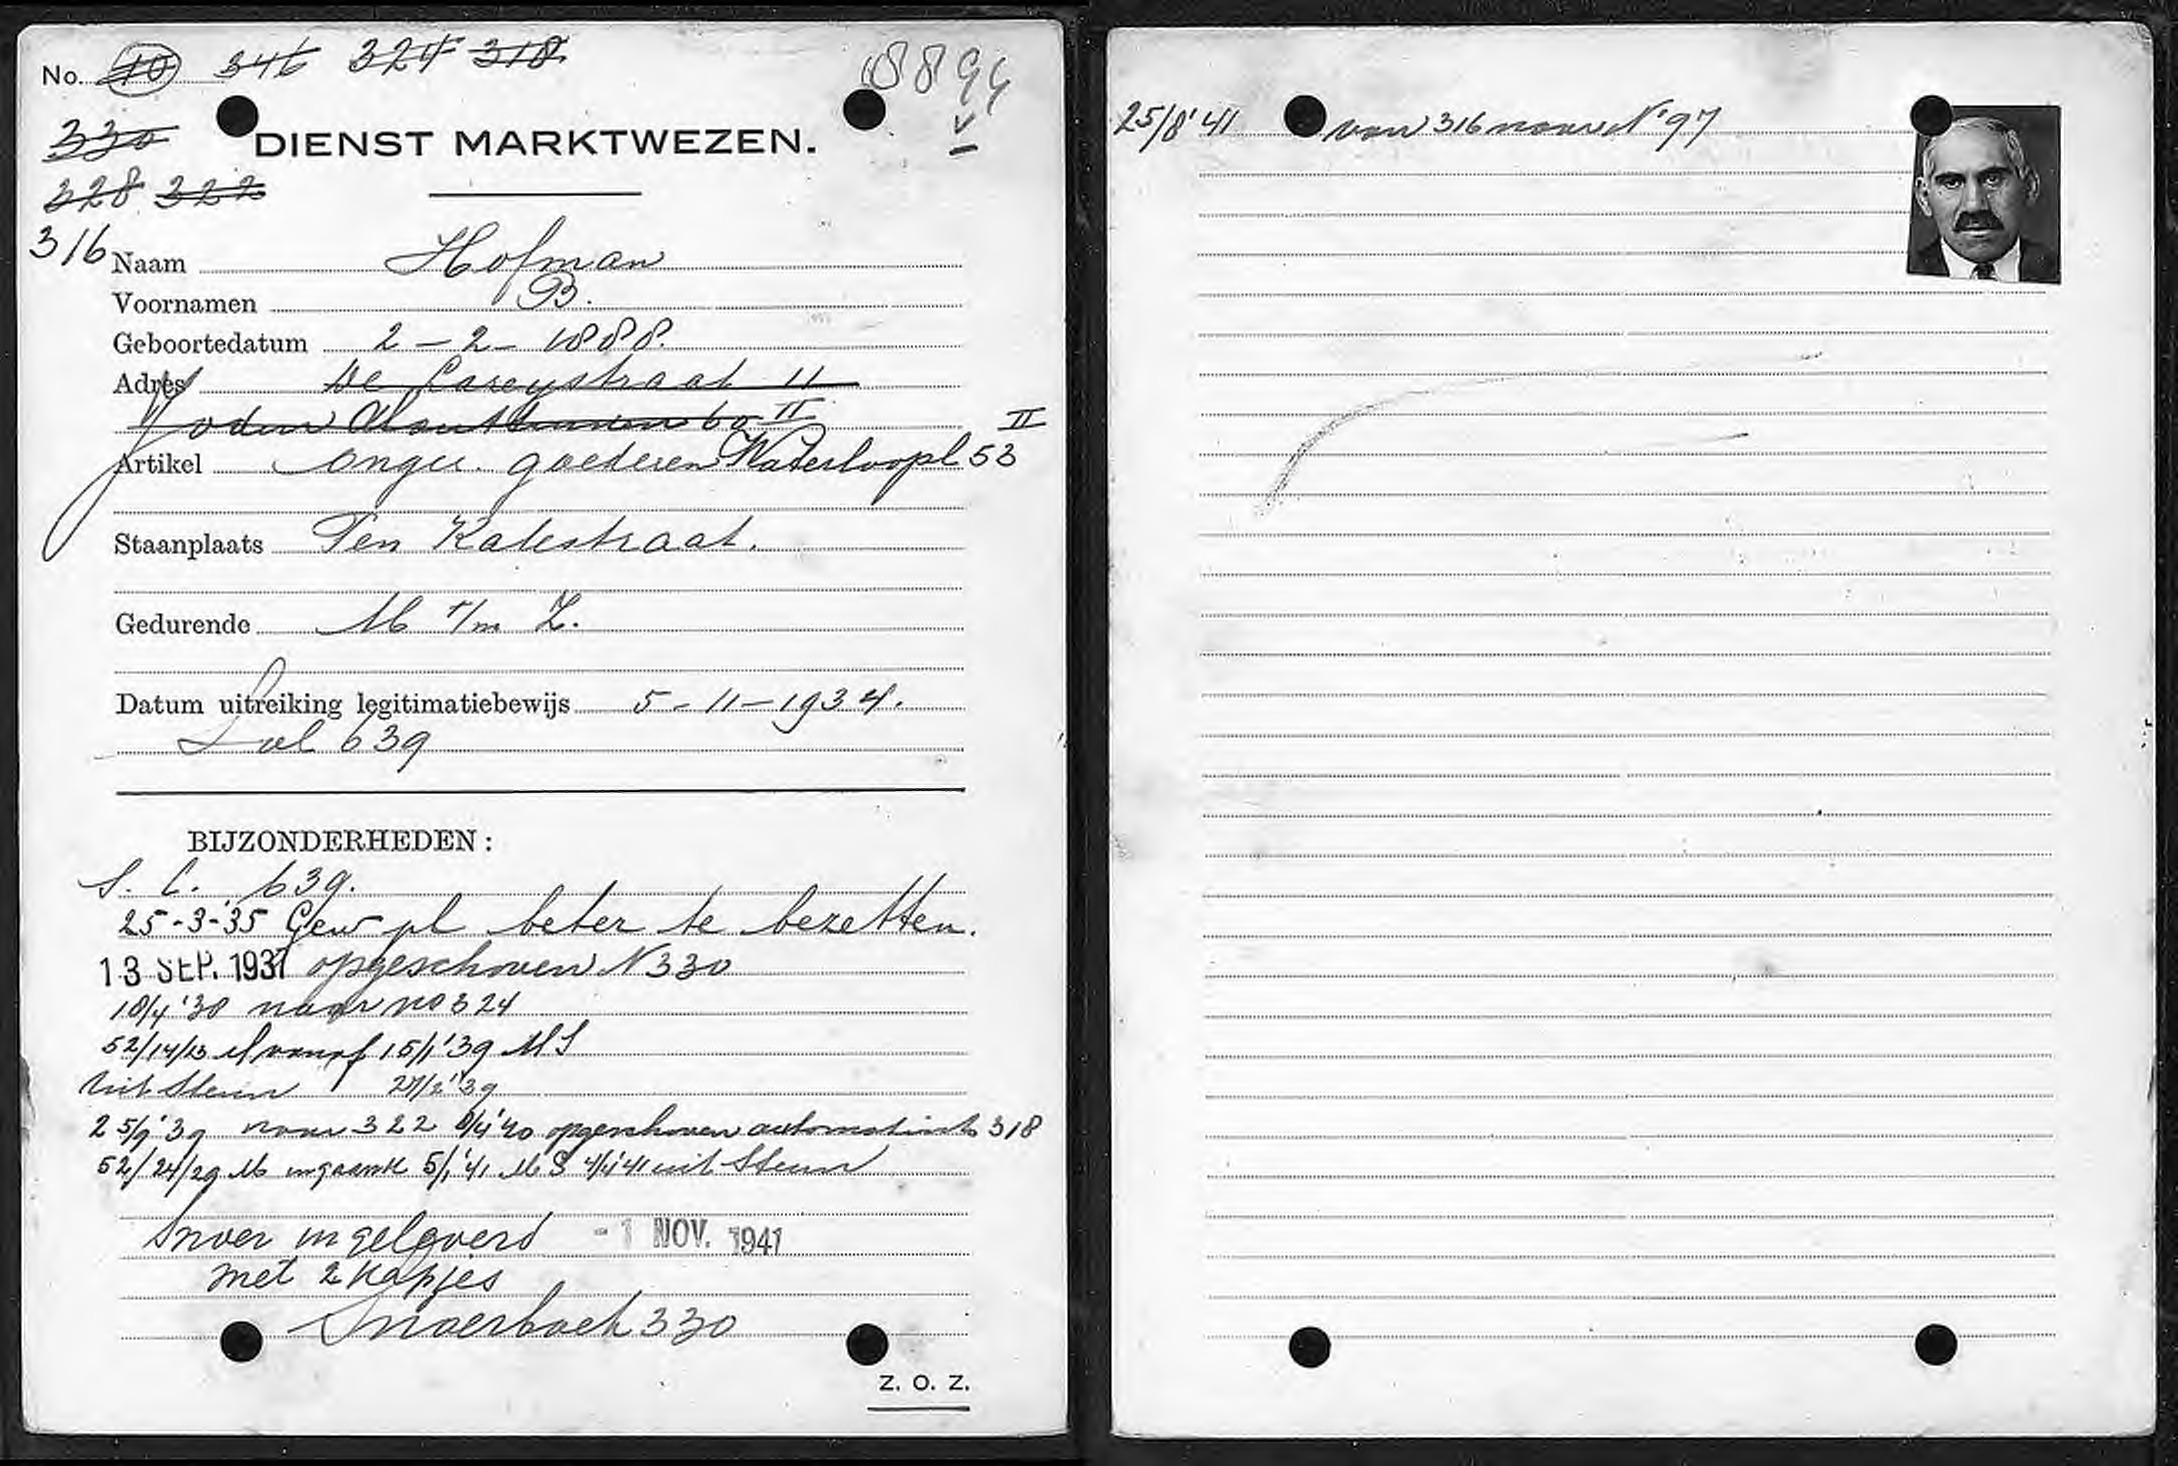 No. 10 346 324 318 8894
330
DIENST MARKTWEZEN.
328 322
316
Naam Hofman
Voornamen B.
Geboortedatum 2-2-1888.
Adres De Careystraat 11
Joden Houttuinen 60 II
Artikel onger. goederen Waterloopl 53 II
Staanplaats Ten Katestraat.
Gedurende M t/m Z.
Datum uitreiking legitimatiebewijs 5-11-1934.
639
BIJZONDERHEDEN:
S. C. 639.
25-3-35 Gew pl beter te bezetten.
13 SEP. 1937 opgeschoven N 330
18/4 '38 naar no 324
52/14/13 M vanaf 15/1 '39 M S
uit Steun 27/2 '39
25/9 '39 naar 322 8/4 '40 opgeschoven automatisch 318
52/24/29 M ingaande 5/1 '41 M S 4/4 '41 uit Steun
Snoer ingeleverd -1 NOV. 1941
met 2 kapjes
Snoerboek 330
Z. O. Z.
25/8 '41 van 316 naar N° 97